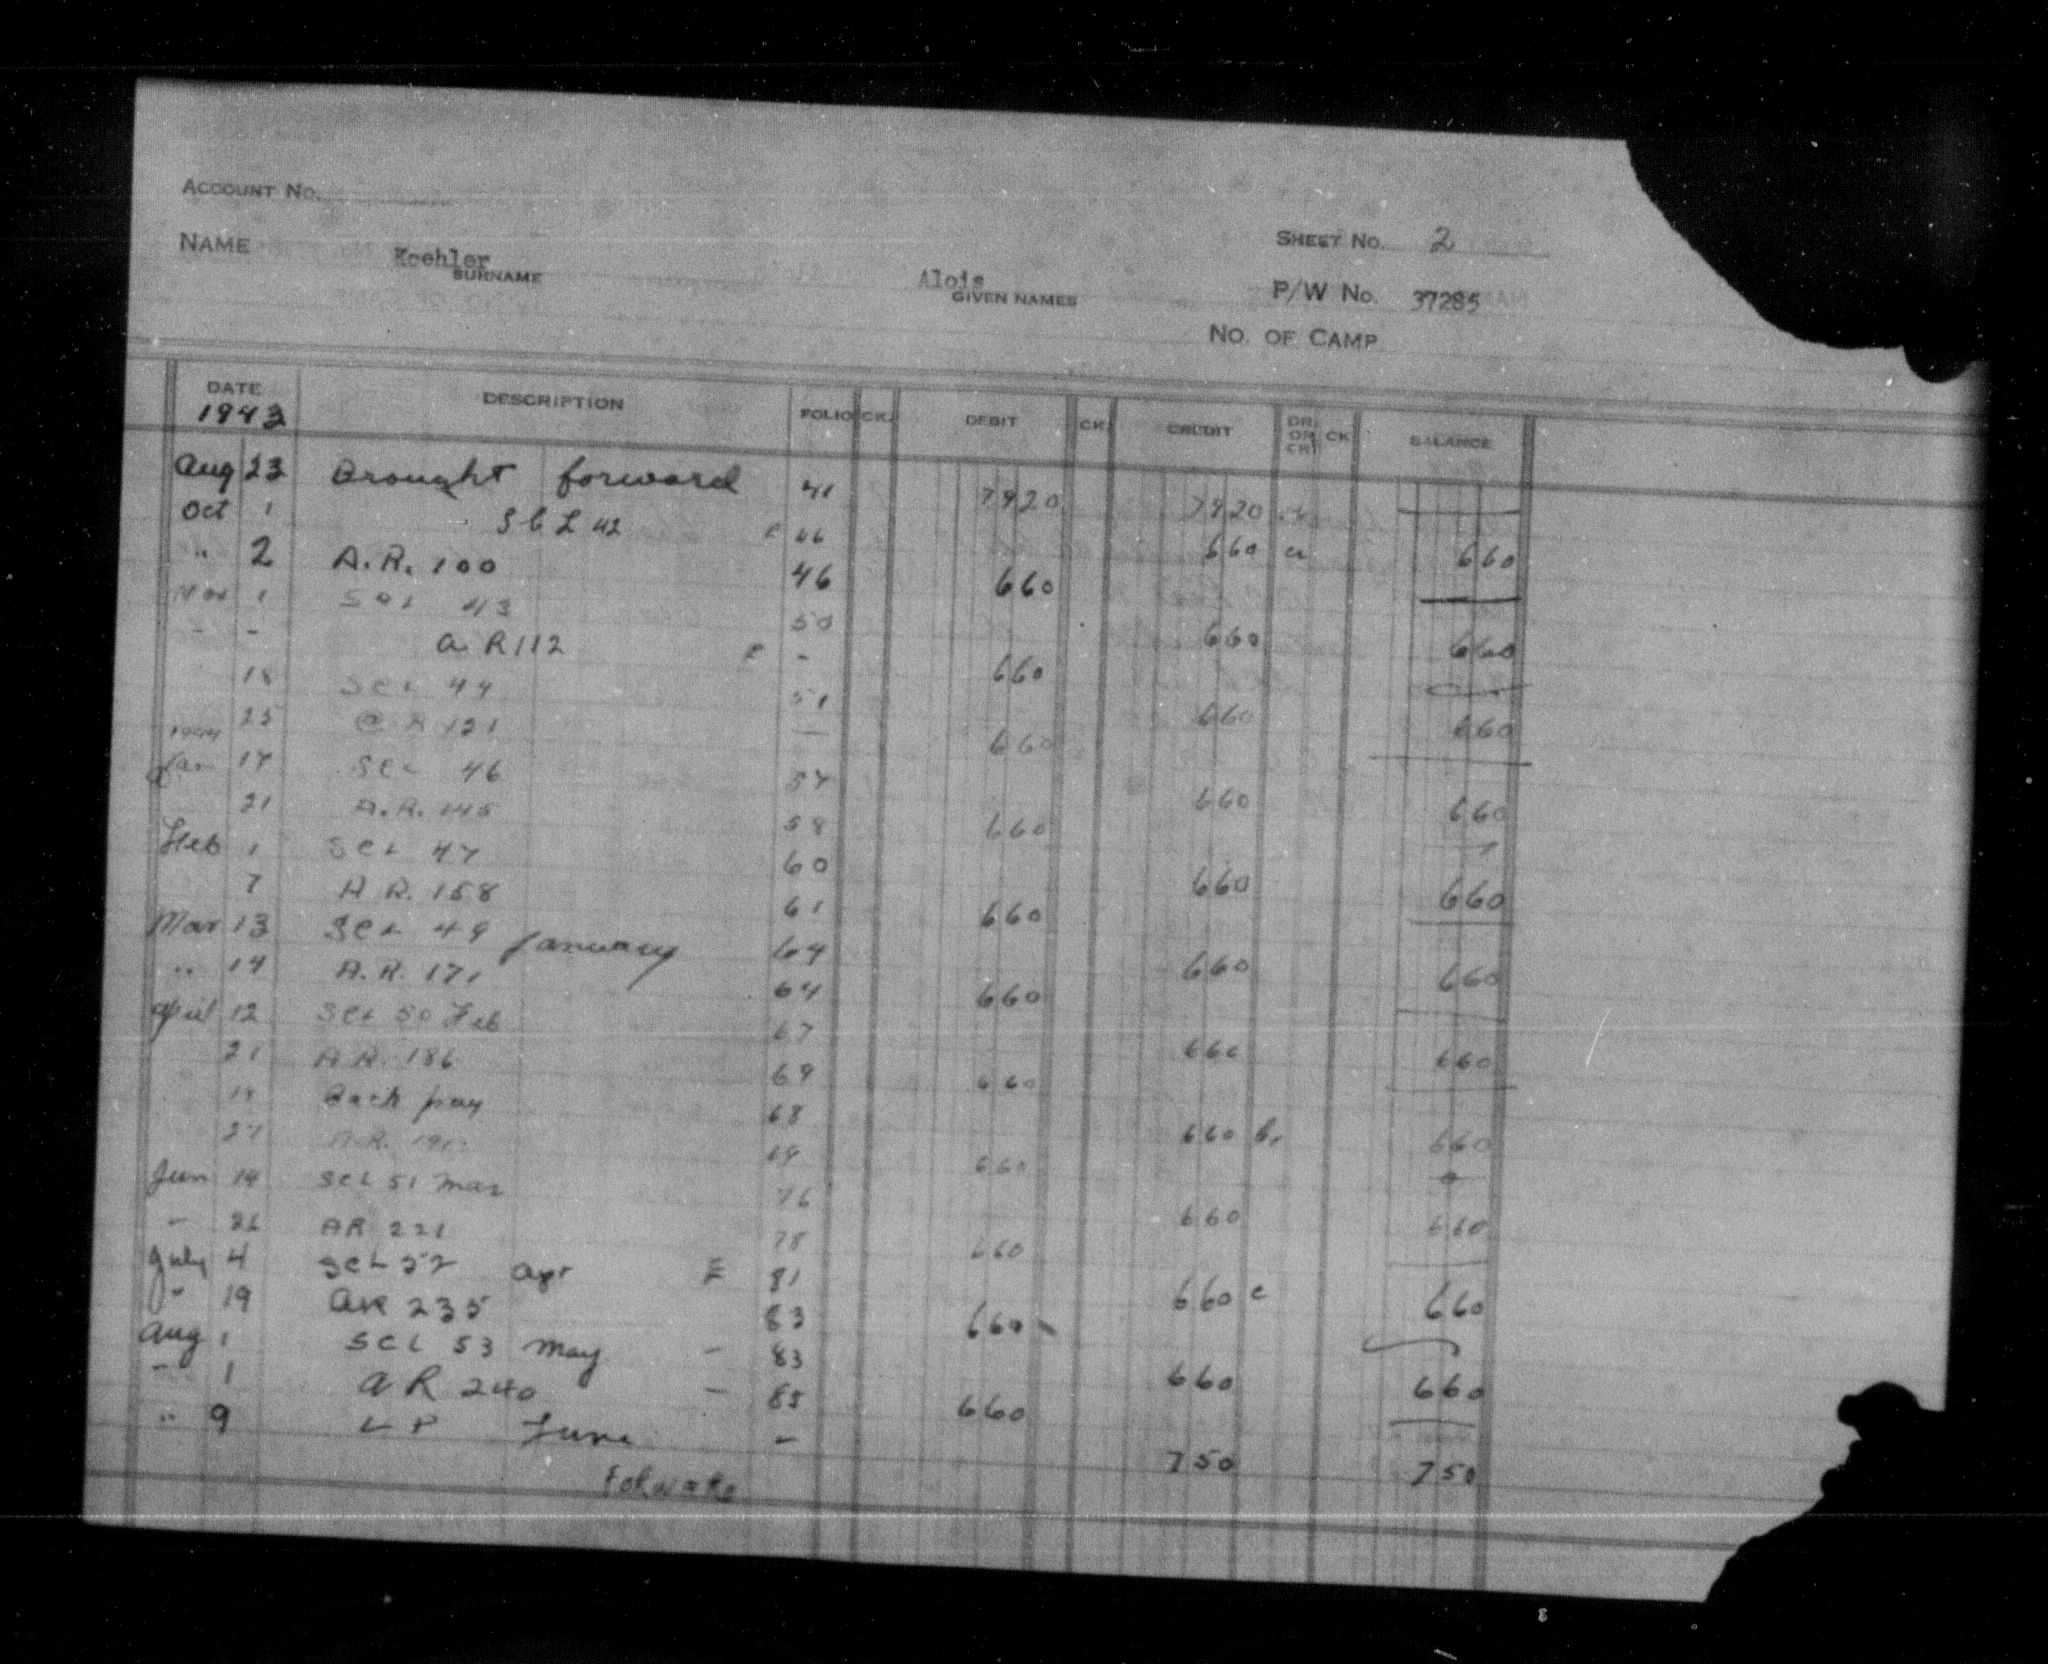 ACCOUNT No.
SHEET No. 2
NAME Koehler Alois P/W No. 37285
SURNAME GIVEN NAMES
NO. OF CAMP
DATE DESCRIPTION FOLIO CK. DEBIT CK. CREDIT DR. OR CR. CK BALANCE
1943
Aug 23 Brought forward 41 7920 7920
Oct 1 S C L 42 46 660 cr 660
" 2 A.R. 100 46 660
Nov 1 SCL 43 50 660 660
- - a R 112 - 660
18 SCL 44 51 660 660
25 A R 121 — 660
1944
Jan 17 SCL 46 57 660 660
21 A.R. 145 58 660
Feb 1 SCL 47 60 660 660
7 A.R. 158 61 660
Mar 13 SCL 49 January 64 660 660
" 14 A.R. 171 64 660
April 12 SCL 50 Feb 67 660 660
21 A.R. 186 69 660
19 Back pay 68 660 660
27 A.R. 69 660
Jun 14 SCL 51 Mar 76 660 660
- 26 AR 221 78 660
July 4 SCL 52 Apr 81 660 c 660
" 19 AR 235 83 660
Aug 1 SCL 53 May - 83 660 660
- 1 a R 240 - 85 660
" 9 L P June - 750 750
Forward